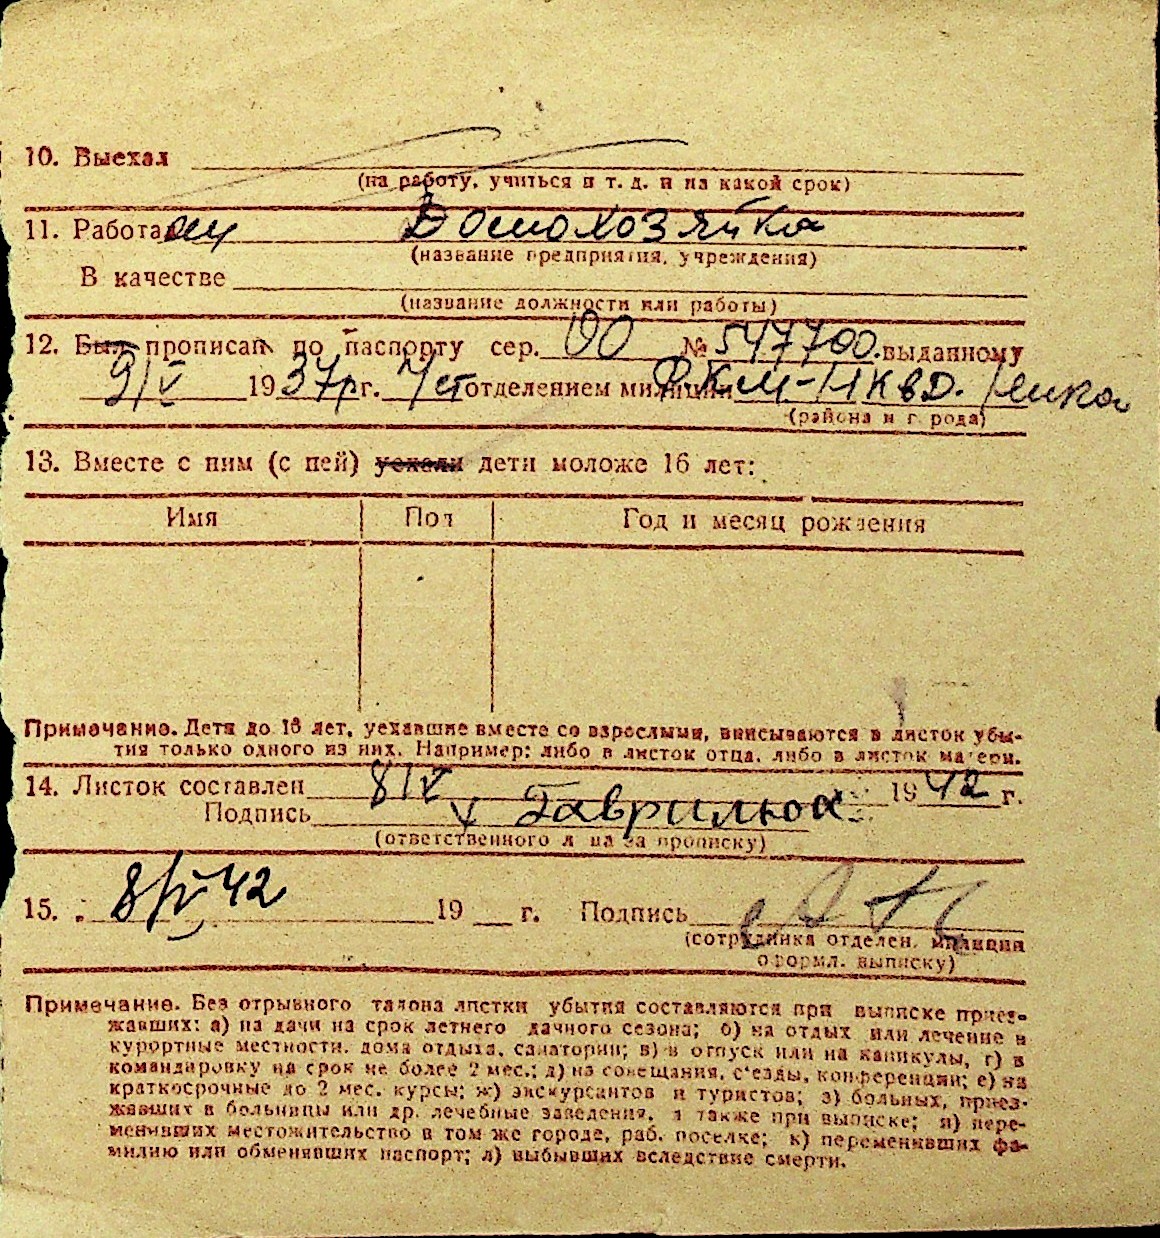 10. Выехал
(на работу, учиться и т. д. и на какой срок)
11. Работа Домохозяйка
(название предприятия, учреждения)
В качестве
(название должности или работы)
12. Был прописан по паспорту сер. № 547700. выданному
9/V 1937 г. отделением милиции РКМ-НКВД.
(района и города)
13. Вместе с ним (с ней) уехали дети моложе 16 лет:
Имя Пол Год и месяц рождения
Примечание. Дети до 16 лет, уехавшие вместе со взрослыми, вписываются в листок убы-
тия только одного из них. Например: либо в листок отца, либо в листок матери.
14. Листок составлен 8/V 1942 г.
Подпись Гаврилюк
(ответственного лица за прописку)
15. 8/V 42 19 г. Подпись
(сотрудника отделен. милиции
оформл. выписку)
Примечание. Без отрывного талона листки убытия составляются при выписке приез-
жавших: а) на дачи на срок летнего дачного сезона; б) на отдых или лечение в
курортные местности, дома отдыха, санатории; в) в отпуск или на каникулы, г) в
командировку на срок не более 2 мес.; д) на совещания, с'езды, конференции; е) на
краткосрочные до 2 мес. курсы; ж) экскурсантов и туристов; з) больных, приез-
жавших в больницы или др. лечебные заведения, а также при выписке; и) пере-
менивших местожительство в том же городе, раб. поселке; к) переменивших фа-
милию или обменявших паспорт; л) выбывших вследствие смерти.